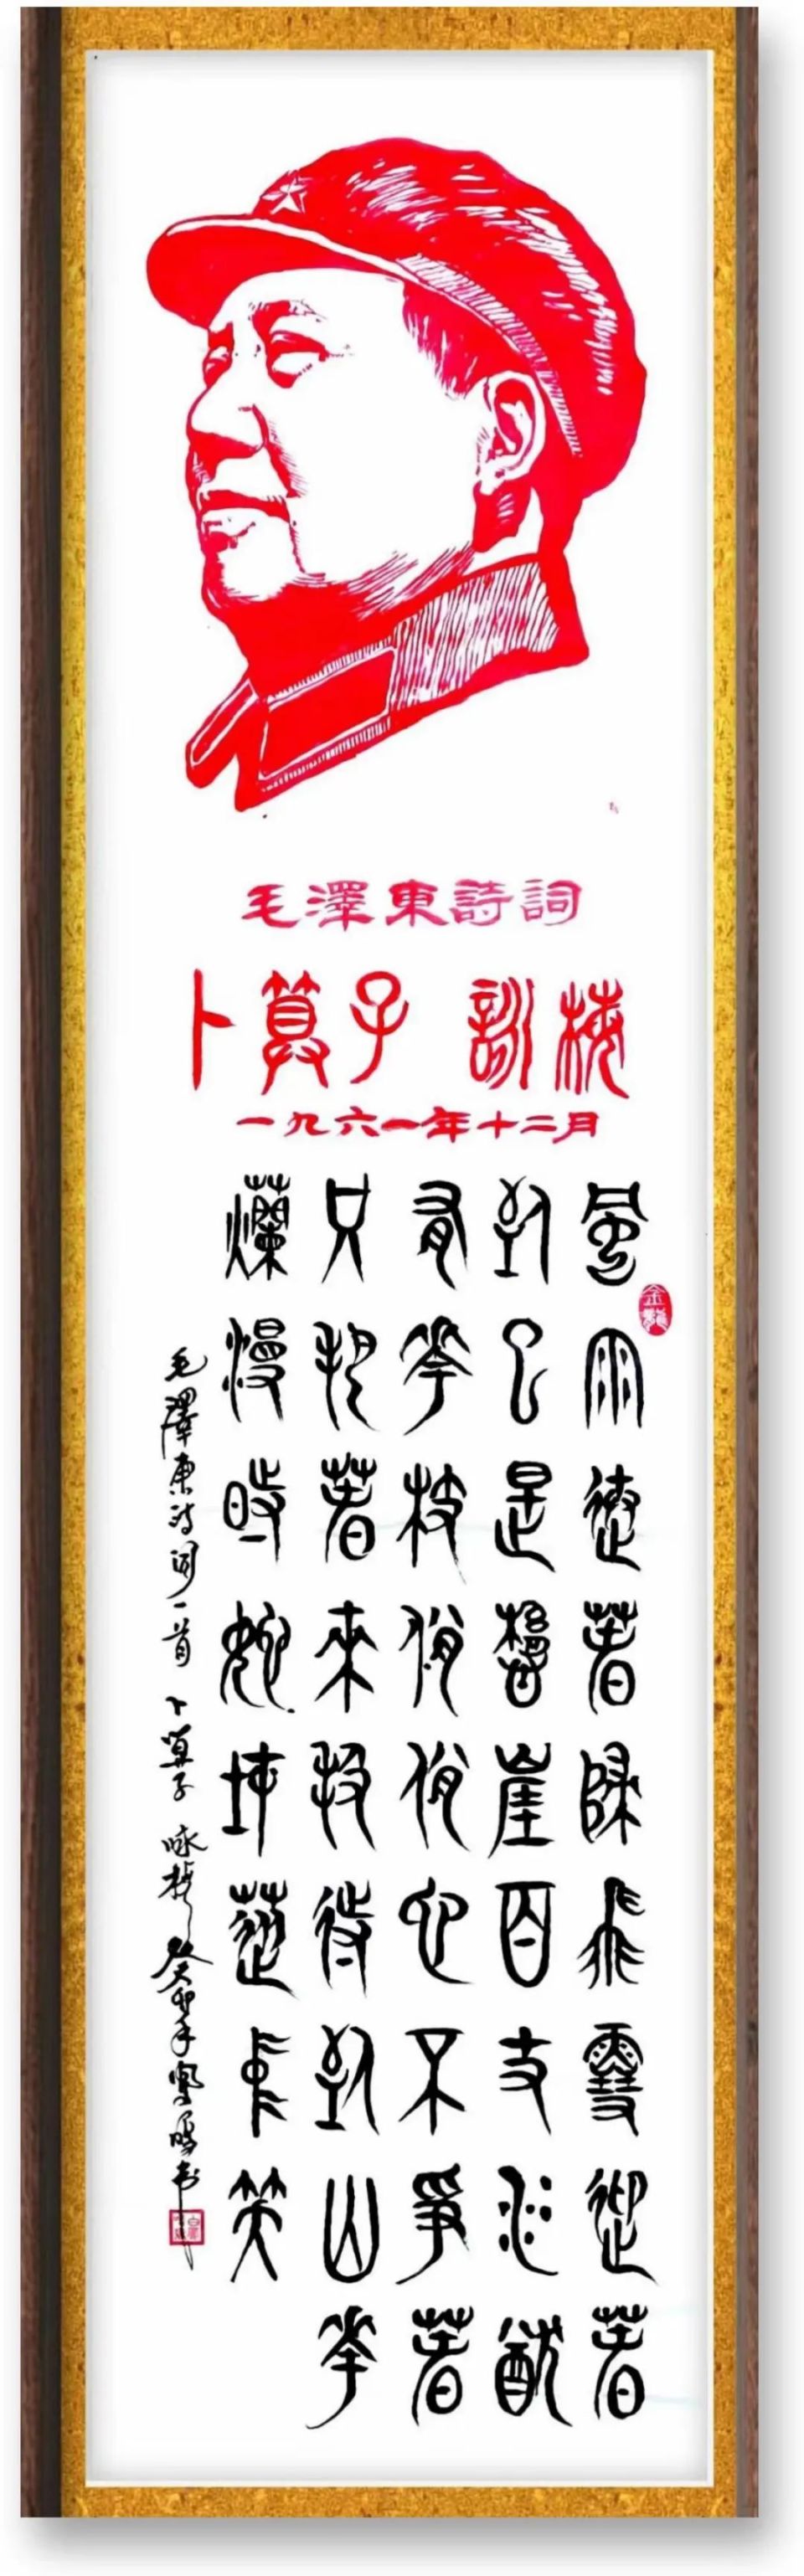 毛澤東詩詞
卜算子 詠梅
一九六一年十二月
風雨送春歸飛雪迎春
到已是懸崖百丈冰猶
有花枝俏俏也不爭春
只把春來報待到山花
爛熳時她在叢中笑
毛澤東詩词一首 卜算子 咏梅 癸卯年鳳鳴书